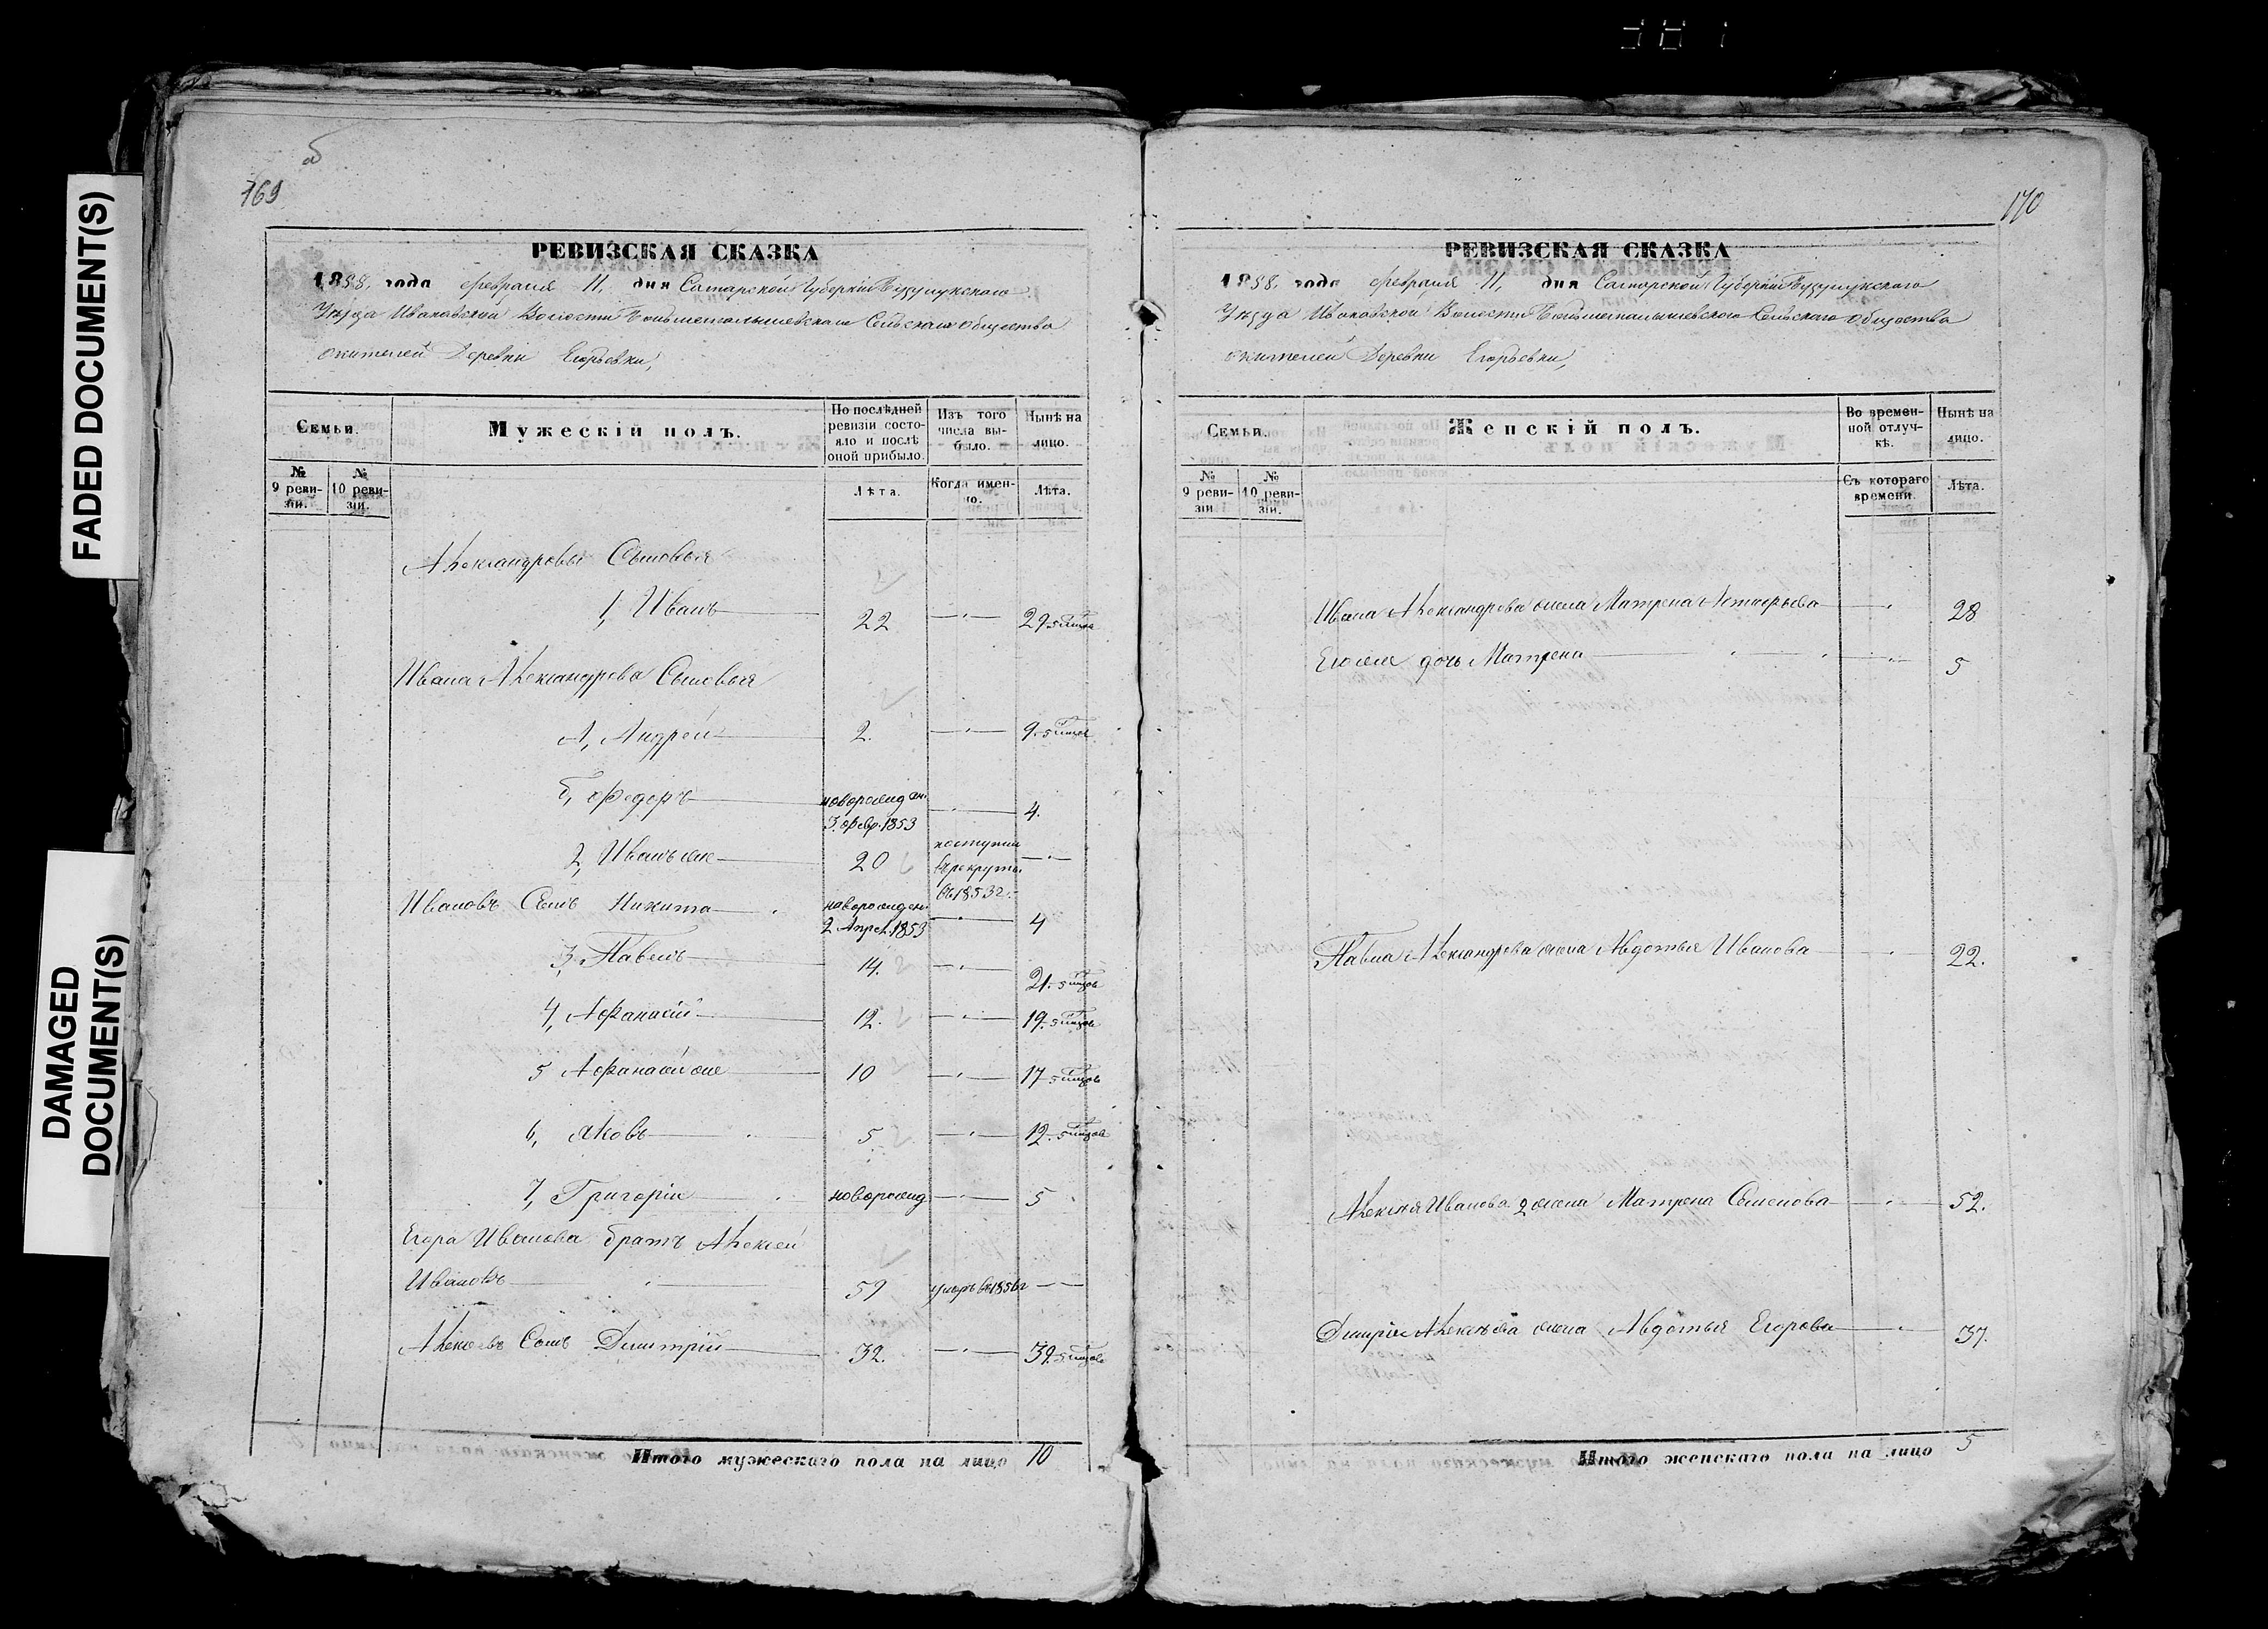 FADED DOCUMENT(S)
DAMAGED
DOCUMENT(S)
169
РЕВИЗСКАЯ СКАЗКА
1858, года февраля 11, дня Самарской Губерніи Бузулукскаго
Уѣзда Ивановской Волости Сельскаго Общества
жителей Деревни Егорьевки,
Семьи.
Мужескій полъ.
По послѣдней ревизіи состояло и послѣ оной прибыло.
Изъ того числа выбыло.
Нынѣ на лицо.
№ 9 ревизіи.
№ 10 ревизіи.
Лѣта.
Когда именно.
Лѣта.
Александровы Сыновья
1, Иванъ 22 29
Ивана Александрова Сыновья
А, Андрей 2. 9.
б, Федоръ новорожден. 3. февр. 1853 4.
2, Иванъ же 20 поступил в рекруты въ 1853 г.
Ивановъ Сынъ Никита новорожден. 2 Апрел. 1853 4
3, Павелъ 14. 21.
4, Афанасій 12. 19.
5 Афанасий же 10 17
6, Яковъ 5 12.
7, Григорій новорожд 5
Егора Иванова братъ Алексей
Ивановъ 59 умеръ въ 1856 г
Алексевъ Сынъ Димитрій 32. 39.
Итого мужескаго пола на лицо 10
170
РЕВИЗСКАЯ СКАЗКА
1858, года февраля 11, дня Самарской Губерніи Бузулукскаго
Уѣзда Ивановской Волости Сельскаго Общества
жителей Деревни Егорьевки,
Семьи.
Женскій полъ.
Во временной отлучкѣ.
Нынѣ на лицо.
№ 9 ревизіи
№ 10 ревизіи.
Съ котораго времени.
Лѣта.
Ивана Александрова жена Матрена 28
Его же дочь Матрена 5
Павла Александрова жена Авдотья Иванова 22.
Алексея Иванова 2 жена Матрена Семенова 52.
Димрия Алексѣева жена Авдотья Егорова 37.
Итого женскаго пола на лицо 5